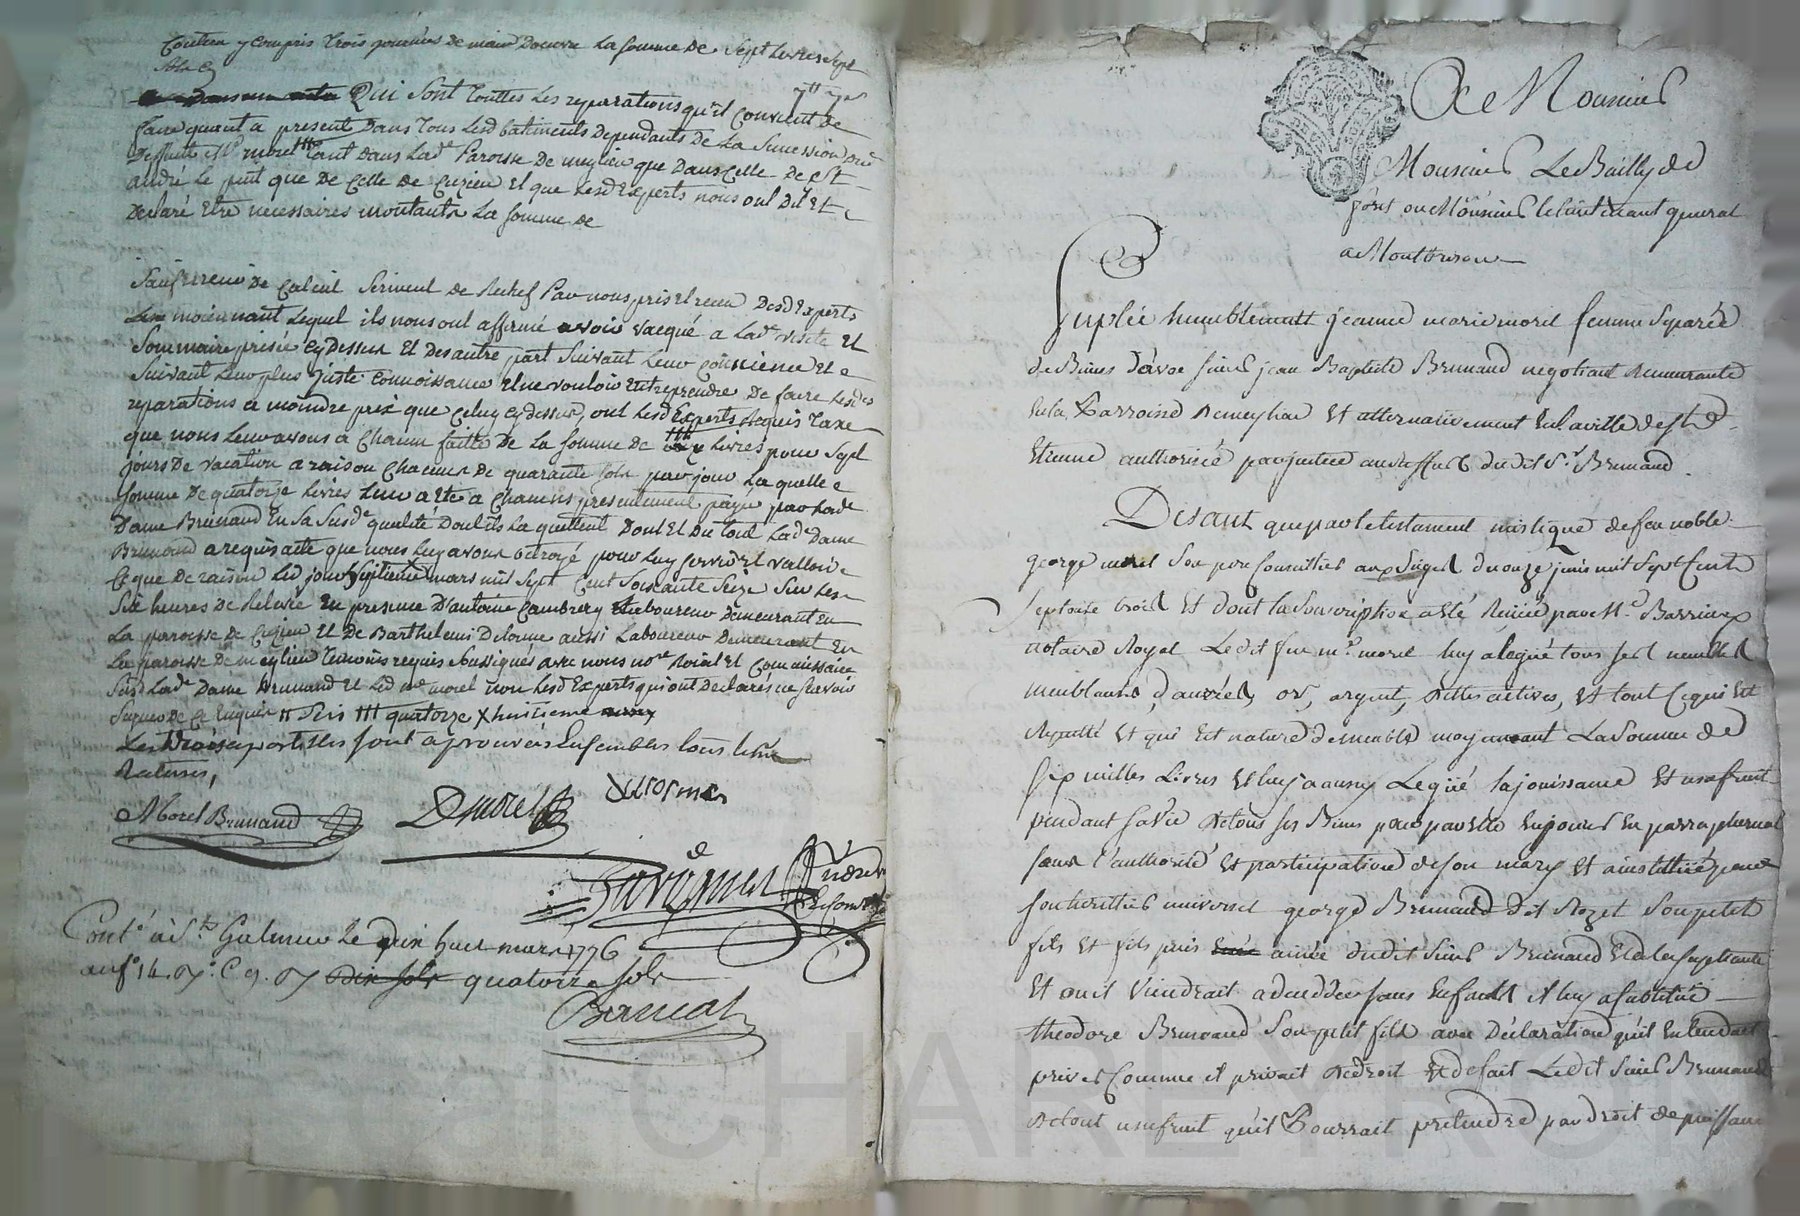 Contien y compris trois journées de main Doeuvre La somme de Sept Livres Sept
Sols Cy
7tt 7s
Qui sont Touttes Les reparations qu'il Convient de
faire quant a present Dans Tous Lesd batiments Dependants De La Succession dud
Deffunt Mr morel tant Dans Lade Paroisse De meylieu que Dans Celle De St
andré Le puit que De Celle de Cuzieu Et que Lesd Experts nous ont Dit Et
Declaré Etre necessaires montants La somme de
Sauf erreur De Calcul Serment de Rechef Par nous pris Et receu Desd Experts
moiennant Lequel ils nous ont affirmé avoir vacqué a Lade visite Et
Sommaire prisée Cy Dessus Et Des autre part Suivant Leur Conscience Et
Suivant Leur plus juste Connoissance Et ne vouloir Entreprendre De faire Lesdes
reparations a moindre prix que Celuy Cy dessus, ont Lesd Experts Requis Taxe
que nous Leur avons a Chacun faitte De La somme de Livres pour Sept
jours De vacation a raison Chacun de quarante sols par jour La quelle
somme De quatorze Livres Leur a Eté a Chacuns presentement payé par Lade
Dame Brunand En Sa Susde qualité Dont ils La quittent Dont Et Du tout Lade Dame
Brunand a requis acte que nous Luy avons octroyé pour Luy servir Et valloir
Ce que De raison Led jour mars mil Sept Cent Soixante Seize Sur Les
Six heures De Relevée En presence D'antoine Laboureur Demeurant En
La paroisse de Cuzieu Et De Barthelemi Delorme aussi Laboureur Demeurant En
La paroisse De meylieu Temoins requis Soussignés avec nous nore Roial Et Commissaire
Lade Dame Brunand Et Led morel non Lesd Experts qui ont Declarés ne Scavoir
Signer De Ce Enquis quatorze X huitieme
Les sont aprouvés Ensembles tous les
Ratures,
Morel Brunand
Dmorel
Delorme
Conte à St Galmier Le Dix huit mars 1776
au fo 14. Vo. C 9. quatorze sols
Bernat
A Monsieur
Monsieur Le Bailly de
forets ou Monsieur le Lieutenant general
a Montbrison
Suplie humblement jeanne marie morel femme Separée
de Biens d'avec Sieur jean Baptiste Brunand negotiant demeurante
En la Parroisse de meylieu Et alternativement En la ville de St
Etienne authorisée par justice au Reffus dudit Sr Brunand.
Disant que par le testament mistique de feu noble
george morel Son pere Conseillier aux du onze juin mil Sept Cent
Septante trois Et dont la Souscription a Eté Reçüe par Me Barrieux
notaire Royal Ledit feu mr morel luy a legué tous Ses meubles
meublants, danrées, or, argent, dettes actives, Et tout Ce qui Est
Reputté Et qui Est nature de meuble moyennant La Somme de
Six milles Livres Et luy a aussy Legüé la jouissance Et usufruit
pendant Sa Vie de tous Ses Biens pour par Elle En jouir En parraphernal
sans l'authorité Et participation de Son mary Et a institüé pour
Son heritier universel george Brunand dit Rozet Son petit
fils Et fils puis ainée dudit Sieur Brunand Et de la Supliante
Et ou il Viendrait a decedder sans Enfants il luy a substitüé
theodore Brunand Son petit fils avec déclaration qu'il Entendait
priver Comme il privait de droit Et de fait Ledit Sieur Brunand
de tout usufruit qu'il Pourrait pretendre par droit de puissance
CHAREYRON